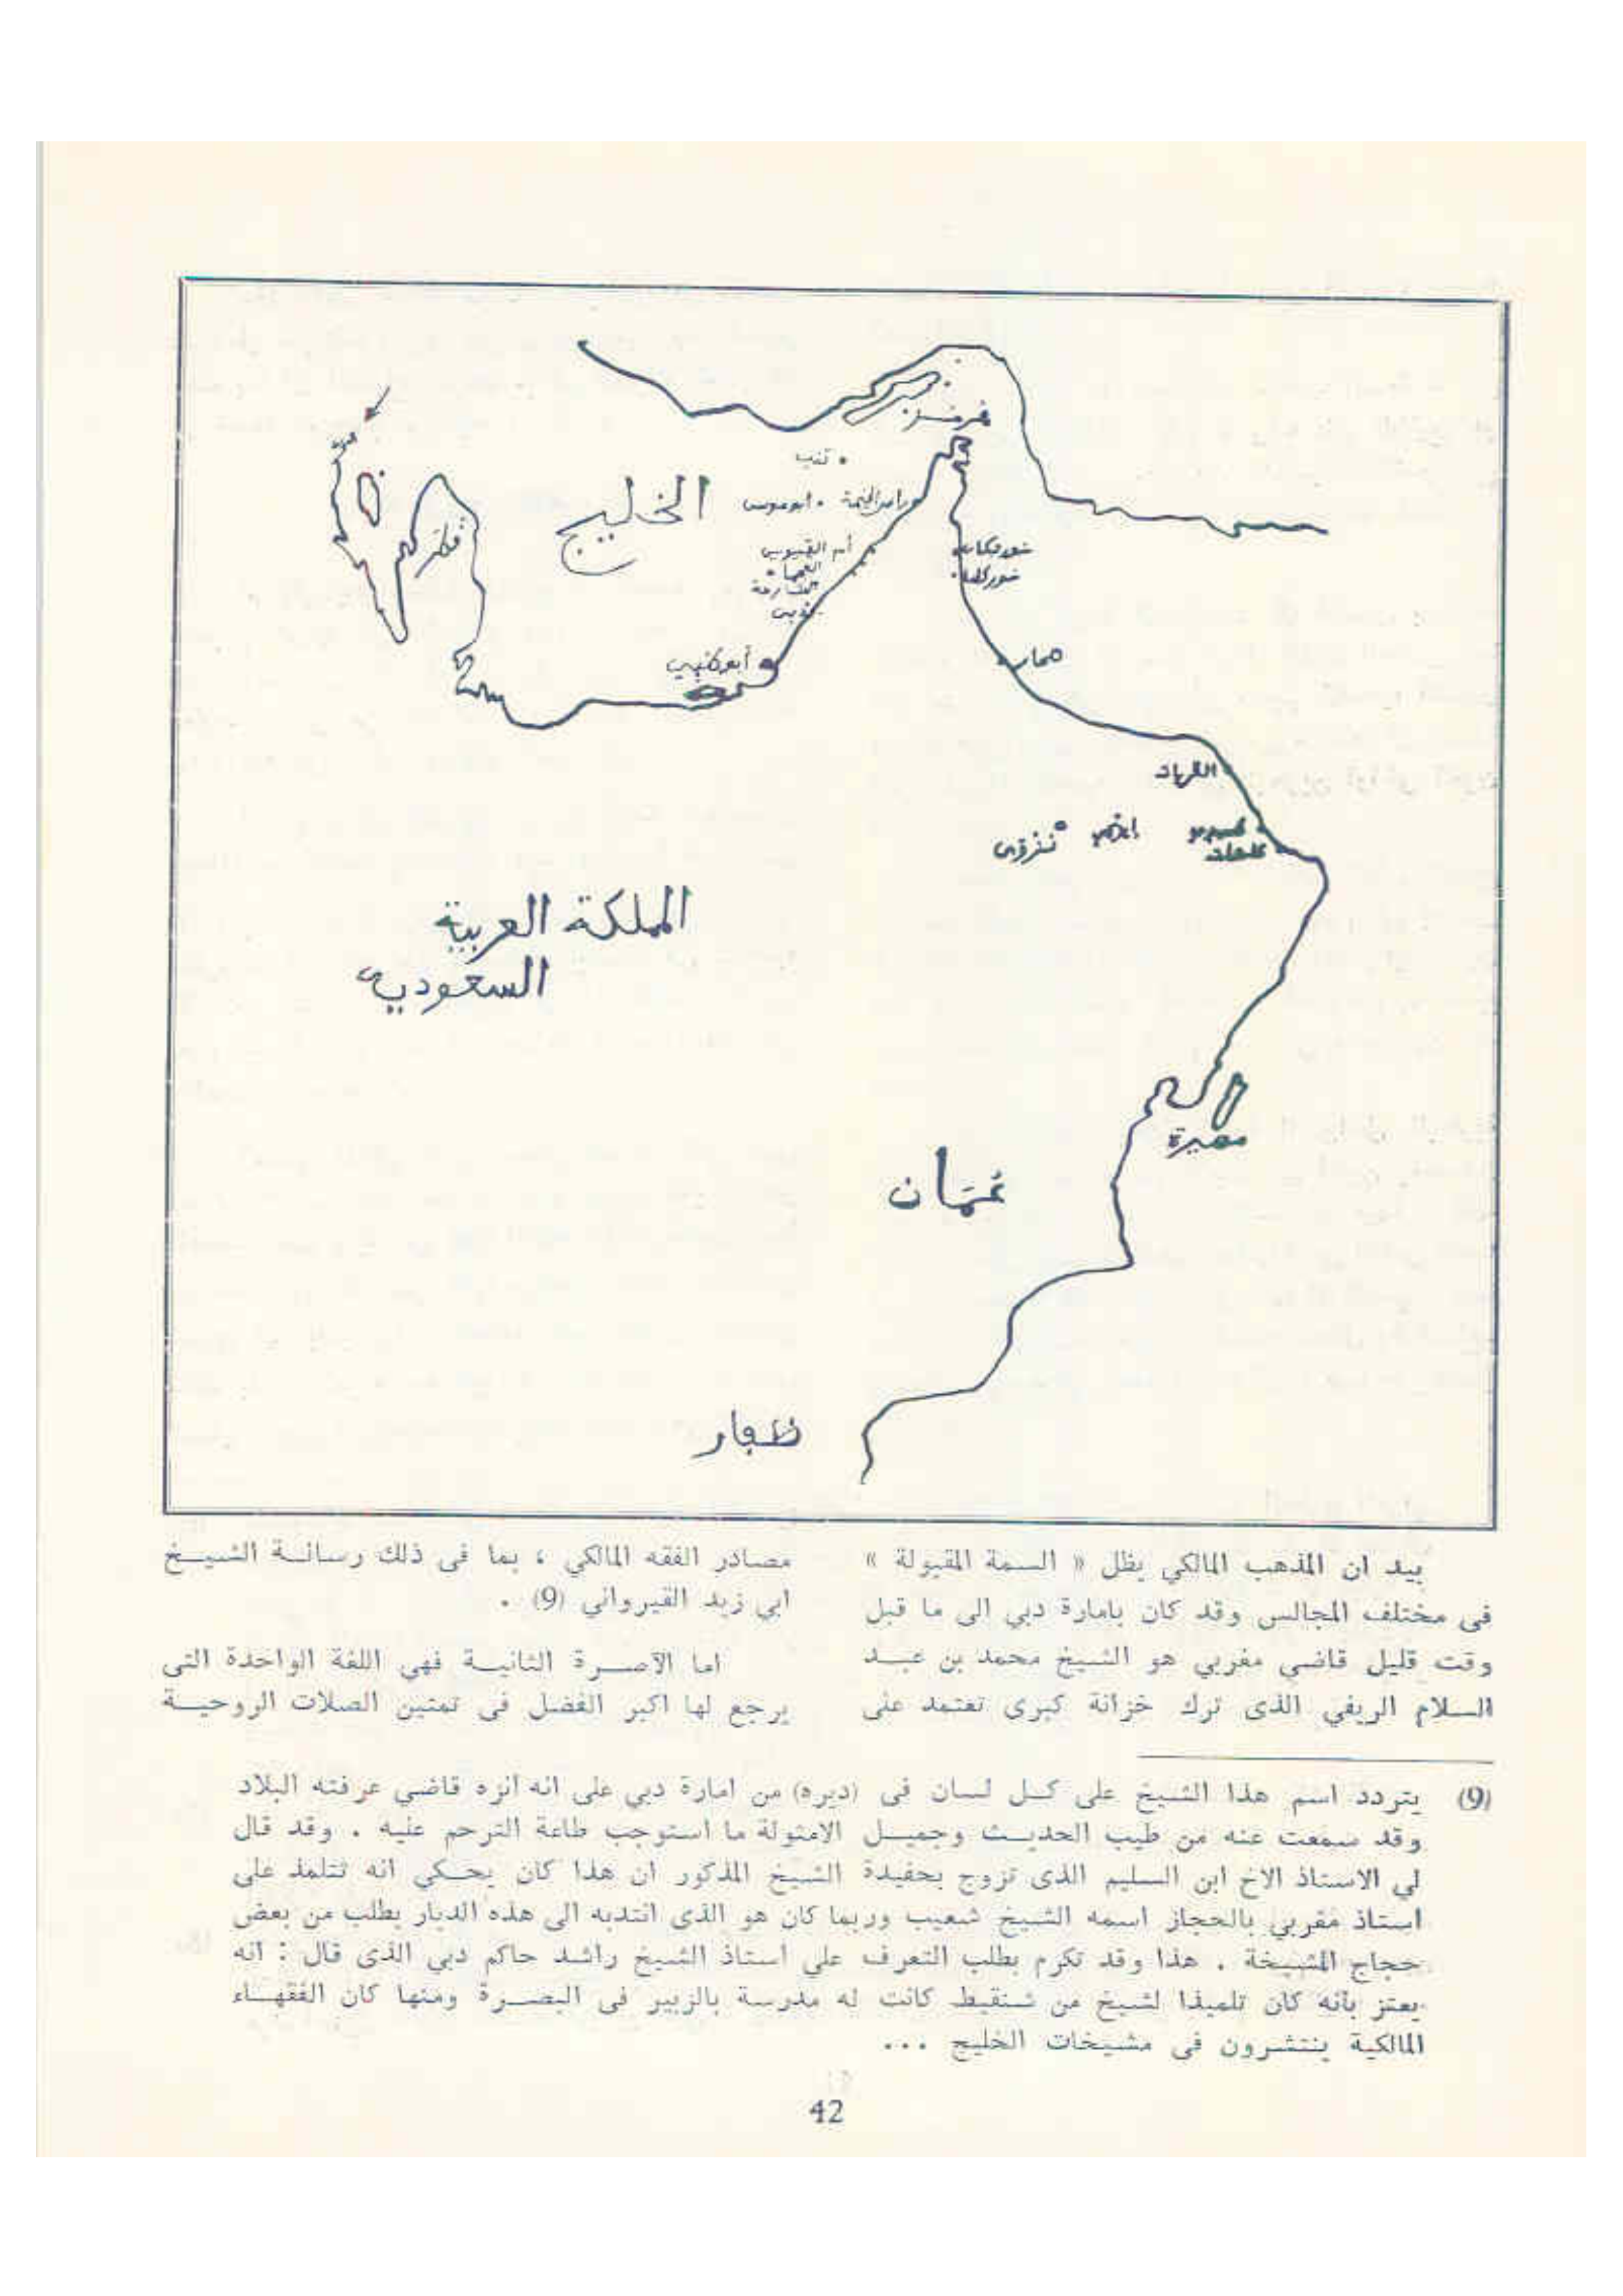 هرمز
تنب
الخليج
ابوموسى
راس الخيمة
قطر
أم القيوين
الشارقة
دبي
خورفكان
خور كلبا
أبوظبي
صحار
القريات
إزكي
نزوى
قلهات
المملكة العربية
السعودية
مصيرة
عُمَان
ظفار
بيد ان المذهب المالكي يظل « السمة المقبولة »
فى مختلف المجالس وقد كان بامارة دبي الى ما قبل
وقت قليل قاضي مغربي هو الشيخ محمد بن عبد
السلام الريفي الذى ترك خزانة كبرى تعتمد على
مصادر الفقه المالكي ، بما فى ذلك رسالة الشيخ
ابي زيد القيرواني (9) .
اما الآصرة الثانية فهي اللغة الواحدة التى
يرجع لها اكبر الفضل فى تمتين الصلات الروحية
(9) يتردد اسم هذا الشيخ على كل لسان فى (ديره) من امارة دبي على انه انزه قاضي عرفته البلاد
وقد سمعت عنه من طيب الحديث وجميل الامثولة ما استوجب طاعة الترحم عليه . وقد قال
لي الاستاذ الاخ ابن السليم الذى تزوج بحفيدة الشيخ المذكور ان هذا كان يحكي انه تتلمذ على
استاذ مغربي بالحجاز اسمه الشيخ شعيب وربما كان هو الذى انتدبه الى هذه الديار بطلب من بعض
حجاج المشيخة . هذا وقد تكرم بطلب التعرف على استاذ الشيخ راشد حاكم دبي الذى قال : انه
يعتز بأنه كان تلميذا لشيخ من شنقيط كانت له مدرسة بالزبير فى البصرة ومنها كان الفقهاء
المالكية ينتشرون فى مشيخات الخليج ...
42